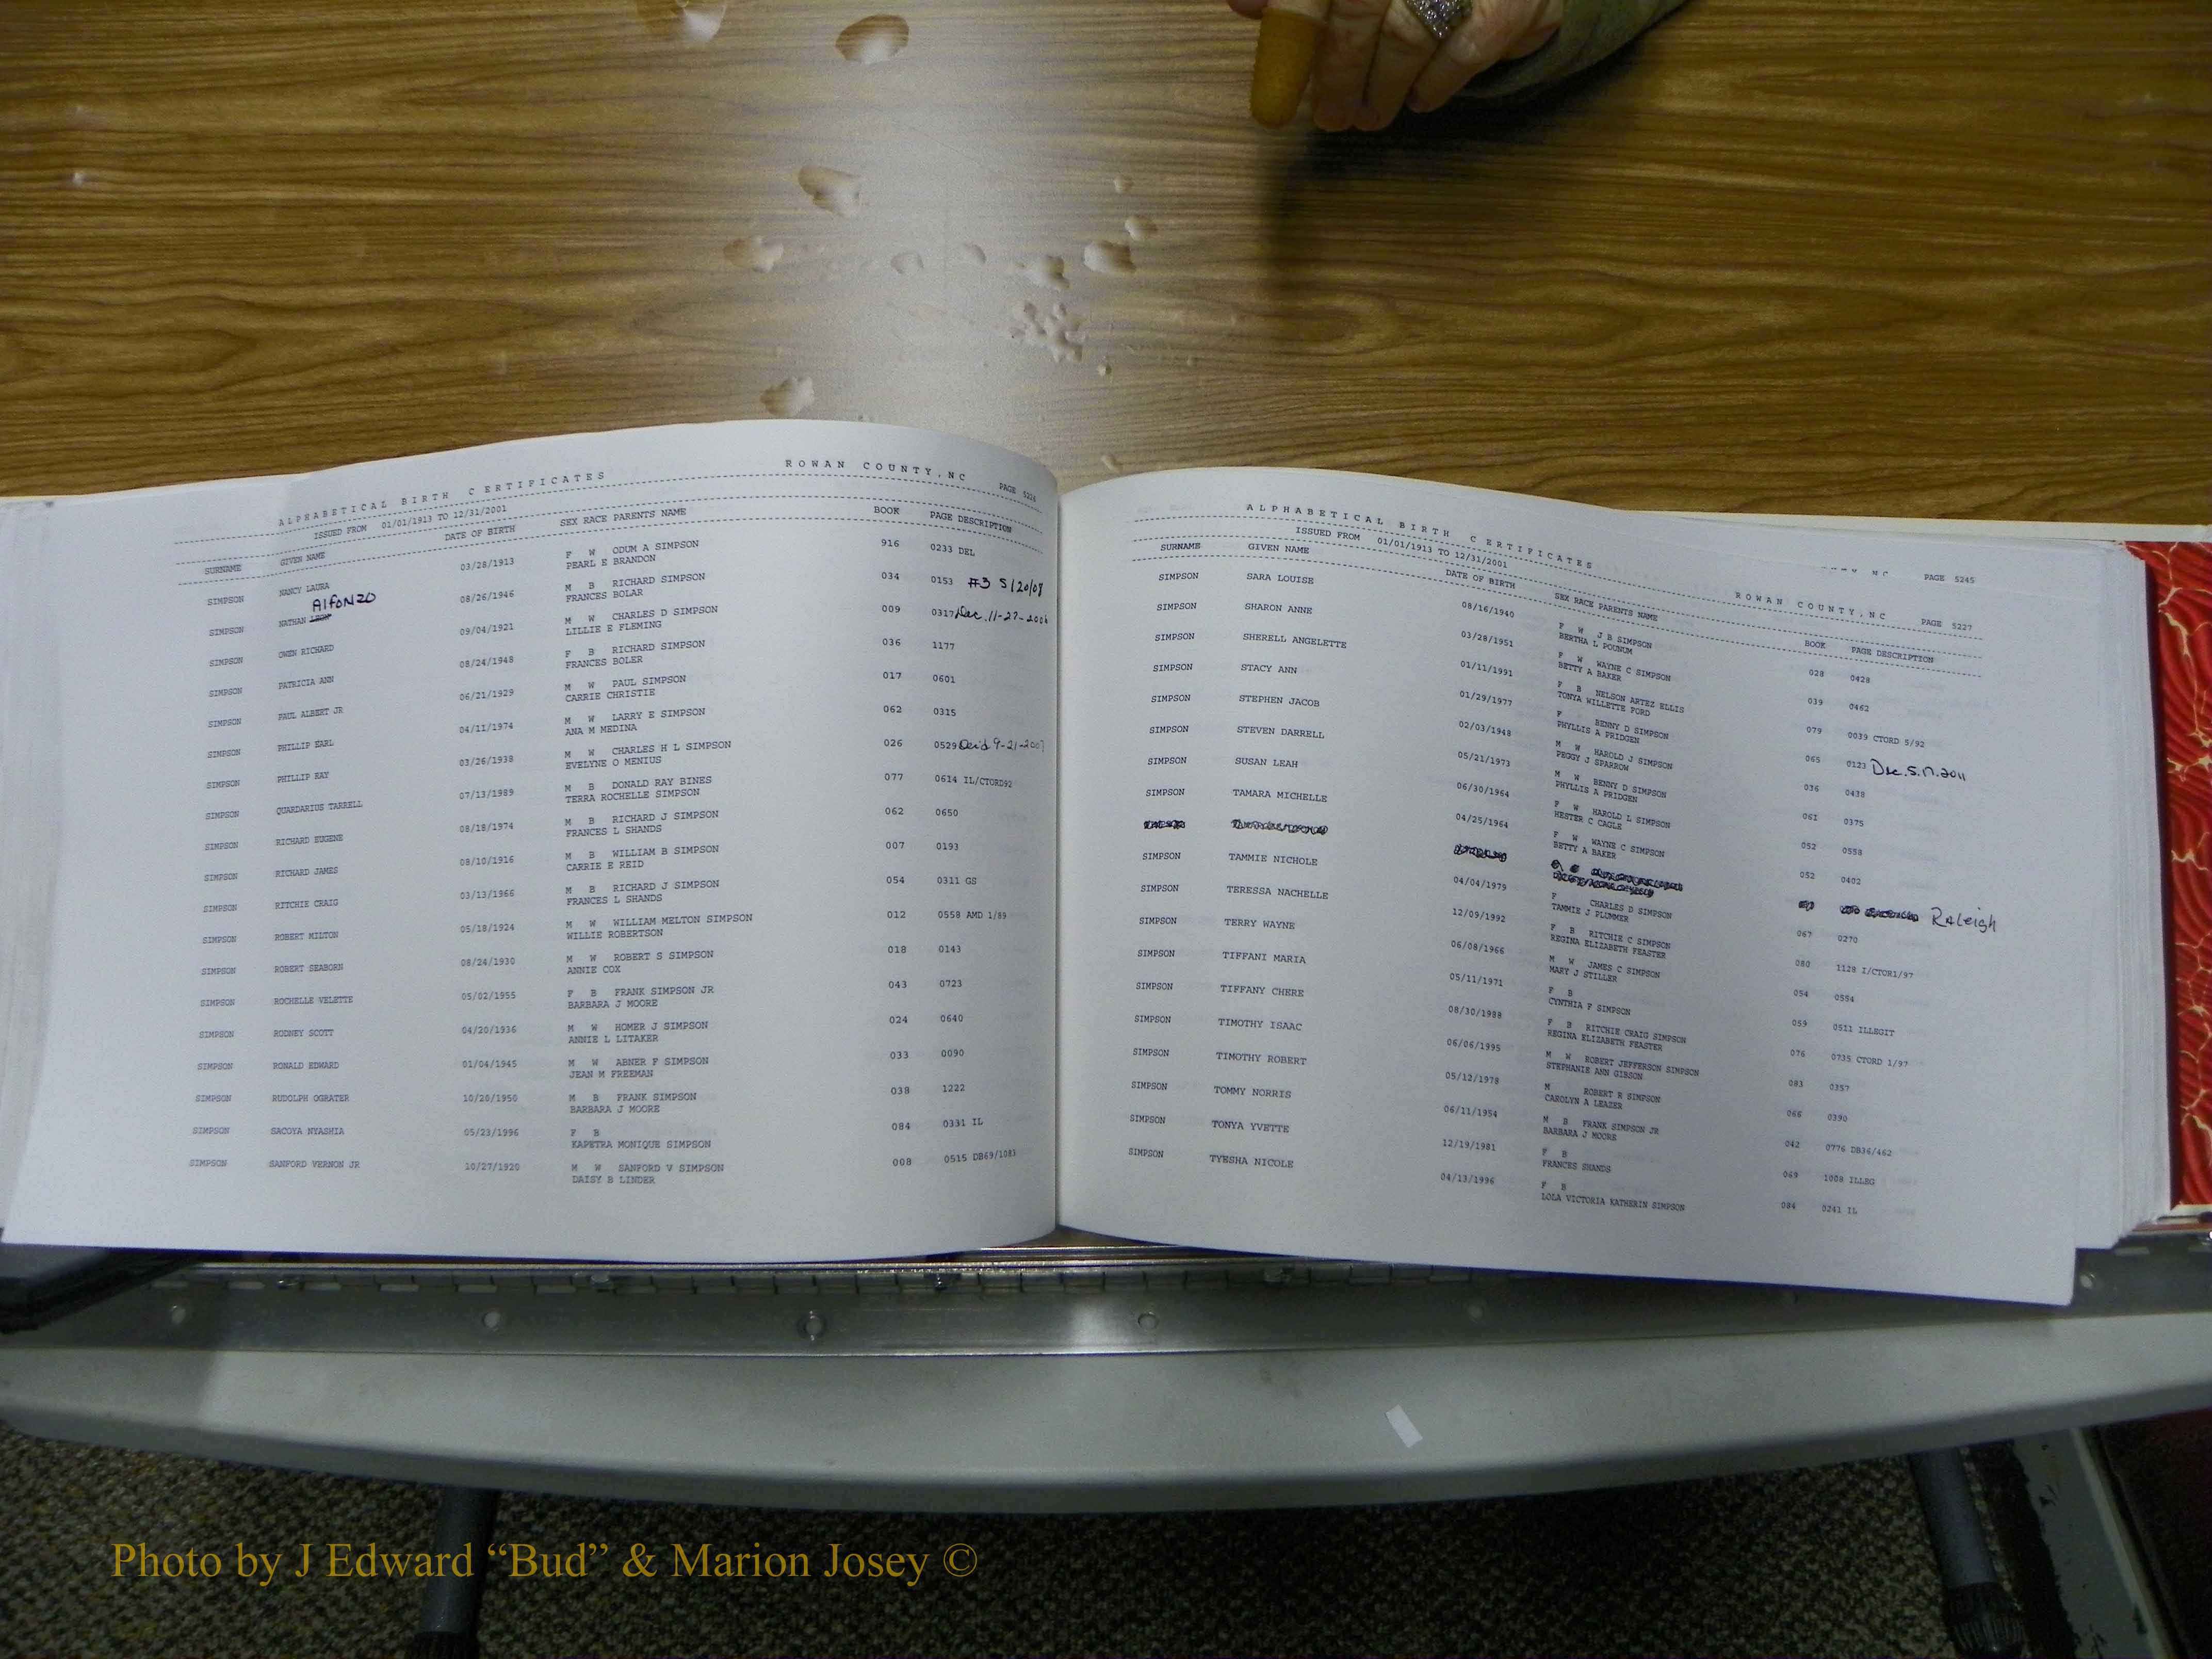 ALPHABETICAL BIRTH CERTIFICATES ROWAN COUNTY,NC PAGE 5226
ISSUED FROM 01/01/1913 TO 12/31/2001
SURNAME GIVEN NAME DATE OF BIRTH SEX RACE PARENTS NAME BOOK PAGE DESCRIPTION
SIMPSON NANCY LAURA 03/28/1913 F W ODUM A SIMPSON 916 0233 DEL
PEARL E BRANDON
Alfonzo
SIMPSON NATHAN 08/26/1946 M B RICHARD SIMPSON 034 0153 #3 5/20/08
FRANCES BOLAR
SIMPSON OWEN RICHARD 09/04/1921 M W CHARLES D SIMPSON 009 0317 Dec. 11-27-2006
LILLIE E FLEMING
SIMPSON PATRICIA ANN 08/24/1948 F B RICHARD SIMPSON 036 1177
FRANCES BOLER
SIMPSON PAUL ALBERT JR 06/21/1929 M W PAUL SIMPSON 017 0601
CARRIE CHRISTIE
SIMPSON PHILLIP EARL 04/11/1974 M W LARRY E SIMPSON 062 0315
ANA M MEDINA
SIMPSON PHILLIP RAY 03/26/1938 M W CHARLES H L SIMPSON 026 0529 Dec'd 9-21-2007
EVELYNE O MENIUS
SIMPSON QUARDARIUS TARRELL 07/13/1989 M B DONALD RAY BINES 077 0614 IL/CTORD92
TERRA ROCHELLE SIMPSON
SIMPSON RICHARD EUGENE 08/18/1974 M B RICHARD J SIMPSON 062 0650
FRANCES L SHANDS
SIMPSON RICHARD JAMES 08/10/1916 M B WILLIAM B SIMPSON 007 0193
CARRIE E REID
SIMPSON RITCHIE CRAIG 03/13/1966 M B RICHARD J SIMPSON 054 0311 GS
FRANCES L SHANDS
SIMPSON ROBERT MILTON 05/18/1924 M W WILLIAM MELTON SIMPSON 012 0558 AMD 1/89
WILLIE ROBERTSON
SIMPSON ROBERT SEABORN 08/24/1930 M W ROBERT S SIMPSON 018 0143
ANNIE COX
SIMPSON ROCHELLE VELETTE 05/02/1955 F B FRANK SIMPSON JR 043 0723
BARBARA J MOORE
SIMPSON RODNEY SCOTT 04/20/1936 M W HOMER J SIMPSON 024 0640
ANNIE L LITAKER
SIMPSON RONALD EDWARD 01/04/1945 M W ABNER F SIMPSON 033 0090
JEAN M FREEMAN
SIMPSON RUDOLPH OGRATER 10/20/1950 M B FRANK SIMPSON 038 1222
BARBARA J MOORE
SIMPSON SACOYA NYASHIA 05/23/1996 F B 084 0331 IL
KAPETRA MONIQUE SIMPSON
SIMPSON SANFORD VERNON JR 10/27/1920 M W SANFORD V SIMPSON 008 0515 DB69/1083
DAISY B LINDER
NC PAGE 5245
ALPHABETICAL BIRTH CERTIFICATES ROWAN COUNTY,NC PAGE 5227
ISSUED FROM 01/01/1913 TO 12/31/2001
SURNAME GIVEN NAME DATE OF BIRTH SEX RACE PARENTS NAME BOOK PAGE DESCRIPTION
SIMPSON SARA LOUISE 08/16/1940 F W J B SIMPSON 028 0428
BERTHA L POUNUM
SIMPSON SHARON ANNE 03/28/1951 F W WAYNE C SIMPSON 039 0462
BETTY A BAKER
SIMPSON SHERELL ANGELETTE 01/11/1991 F B NELSON ARTEZ ELLIS 079 0039 CTORD 5/92
TONYA WILLETTE FORD
SIMPSON STACY ANN 01/29/1977 F BENNY D SIMPSON 065 0123 Dec. 5.17.2011
PHYLLIS A PRIDGEN
SIMPSON STEPHEN JACOB 02/03/1948 M W HAROLD J SIMPSON 036 0438
PEGGY J SPARROW
SIMPSON STEVEN DARRELL 05/21/1973 M W BENNY D SIMPSON 061 0375
PHYLLIS A PRIDGEN
SIMPSON SUSAN LEAH 06/30/1964 F W HAROLD L SIMPSON 052 0558
HESTER C CAGLE
SIMPSON TAMARA MICHELLE 04/25/1964 F W WAYNE C SIMPSON 052 0402
BETTY A BAKER
Raleigh
SIMPSON TAMMIE NICHOLE 04/04/1979 F CHARLES D SIMPSON 067 0270
TAMMIE J PLUMMER
SIMPSON TERESSA NACHELLE 12/09/1992 F B RITCHIE C SIMPSON 080 1128 I/CTOR1/97
REGINA ELIZABETH FEASTER
SIMPSON TERRY WAYNE 06/08/1966 M W JAMES C SIMPSON 054 0554
MARY J STILLER
SIMPSON TIFFANI MARIA 05/11/1971 F B 059 0511 ILLEGIT
CYNTHIA F SIMPSON
SIMPSON TIFFANY CHERE 08/30/1988 F B RITCHIE CRAIG SIMPSON 076 0735 CTORD 1/97
REGINA ELIZABETH FEASTER
SIMPSON TIMOTHY ISAAC 06/06/1995 M W ROBERT JEFFERSON SIMPSON 083 0357
STEPHANIE ANN GIBSON
SIMPSON TIMOTHY ROBERT 05/12/1978 M ROBERT R SIMPSON 066 0390
CAROLYN A LEAZER
SIMPSON TOMMY NORRIS 06/11/1954 M B FRANK SIMPSON JR 042 0776 DB36/462
BARBARA J MOORE
SIMPSON TONYA YVETTE 12/19/1981 F B 069 1008 ILLEG
FRANCES SHANDS
SIMPSON TYESHA NICOLE 04/13/1996 F B 084 0241 IL
LOLA VICTORIA KATHERIN SIMPSON
Photo by J Edward “Bud” & Marion Josey ©